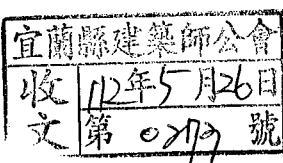 宜蘭縣建築師公會
收文
112年5月26日
第 0279 號